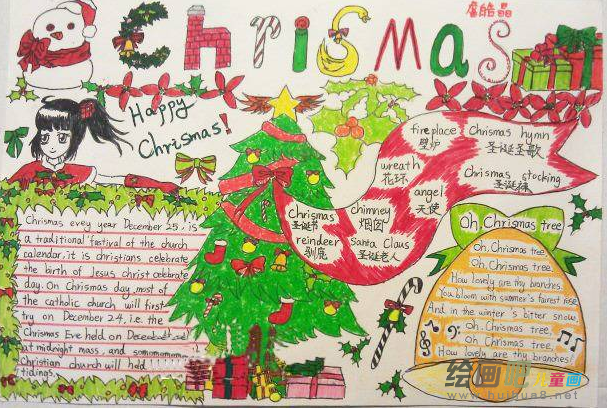 Chrismas
Happy
Chrismas!
fireplace
壁炉
Chrismas hymn
圣诞圣歌
wreath
花环
Chrismas stocking
圣诞袜
angel
天使
Chrismas
圣诞节
chimney
烟囱
reindeer
驯鹿
Santa Claus
圣诞老人
Chrismas evey year December 25, is
a traditional fastival of the church
calendar, it is christians celebrate
the birth of Jesus christ celebrate
day. On Chrismas day, most of
the catholic church will first
try on December 24, i.e. the
Chrismas Eve held on December
at midnight mass, and
Christian church will held
tidings.
Oh, Chrismas tree
Oh, Chrismas tree.
Oh, Chrismas tree.
How lovely are thy branches.
You bloom with summer's fairest rose,
And in the winter's bitter snow.
Oh. Chrismas tree.
Oh. Chrismas tree.
How lovely are thy branches!
绘画吧 儿童画
www.huihua8.net